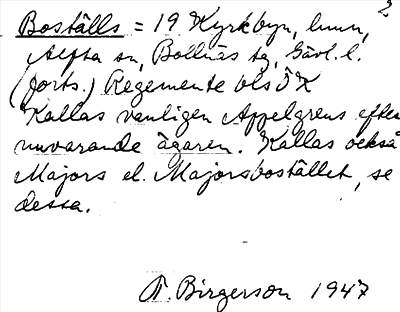 2
Boställs = 19 Kyrkbyn, hmn,
Alfta sn, Bollnäs tg, Gävl. l.
(forts.) Regemente
Kallas vanligen Appelgrens efter
nuvarande ägaren. Kallas också
Majors el. Majorsbostället, se
dessa.
F. Birgerson 1947